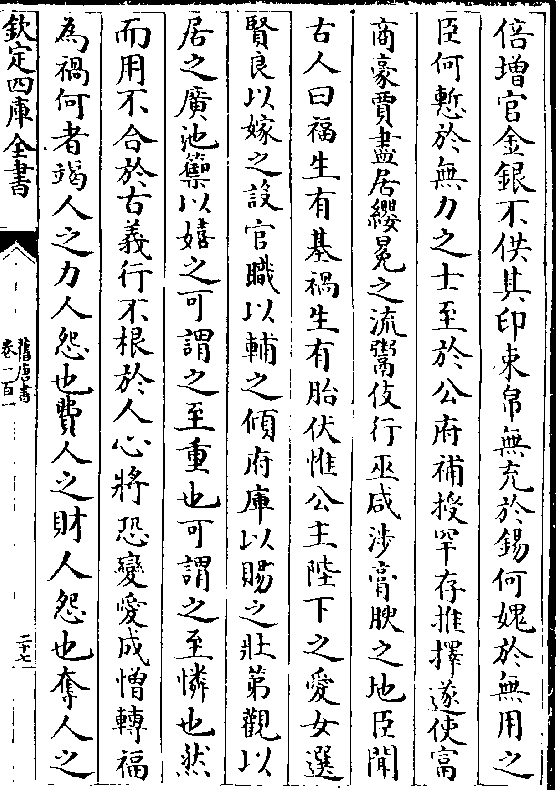 倍增官金銀不供其印束帛無充於錫何媿於無用之
臣何慙於無力之士至於公府補授罕存推擇遂使富
商豪賈盡居纓冕之流鬻伎行巫咸涉膏腴之地臣聞
古人曰福生有基禍生有胎伏惟公主陛下之愛女選
賢良以嫁之設官職以輔之傾府庫以賜之壯第觀以
居之廣池籞以嬉之可謂之至重也可謂之至憐也然
而用不合於古義行不根於人心將恐變愛成憎轉福
為禍何者竭人之力人怨也費人之財人怨也奪人之
欽定四庫全書
舊唐書
卷一百一
二十七